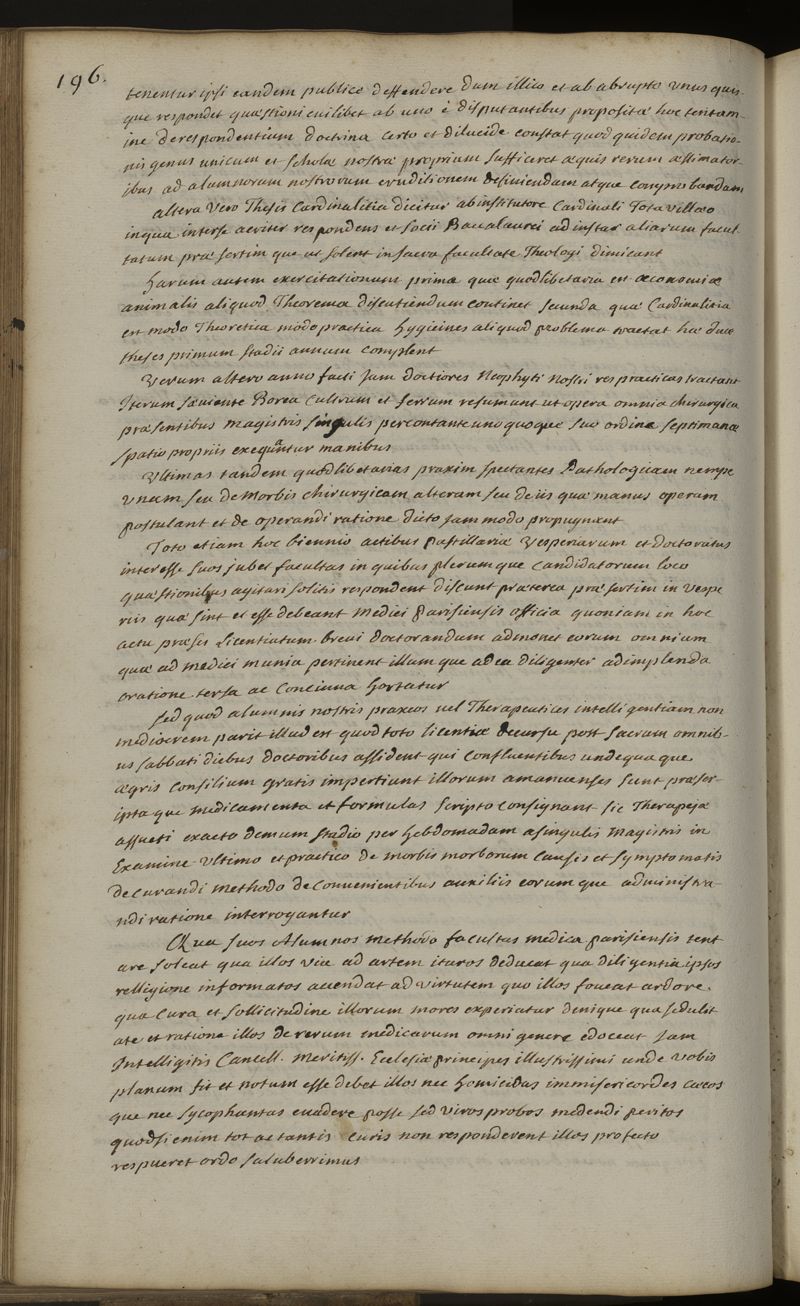 196.
tenentur ipsi eandem publice deffendere dum illico et ab abrupto unus quis-
que respondet quæstioni cuilibet ab uno è disputantibus proposita hoc tentam-
ine de respondentium doctrina certo et dilucide constat quod quidem probatio-
nis genus unicum et scholæ nostræ proprium sufficeret æquis rerum æstimator-
ibus ad alumnorum nostrorum eruditionem definiendam atque comprobandam
altera vero Thesis Cardinalitia dicitur ab institutore Cardinali Totavillæo
in qua inter se acriter respondens et socii Baccalaurei ad instar aliarum facul
tatum præsertim que ut solent in sacra facultate Theologi dimicant
harum autem exercitationum prima quæ quodlibetaria est œconomiæ
animalis aliquod Theorema discutiendum continet secunda quæ Cardinalitia
est modo Theoretica modo practica hygieines aliquod problema tractat hæ duæ
theses primum stadii annum complent
Verum altero anno facti jam doctiores Neophyti Nostri res practicas tractant
Iterum sæviente Borea cultrum et ferrum resumunt ut opera omnia chirurgica
præsentibus magistris singulis percontante uno quoque suo ordine septimanæ
spatio propriis exequantur manibus
Ultimas tandem quodlibetarias praxim spectantes Pathologicam nempe
unam seu de Morbis chirurgicam alteram seu de iis quæ manus operam
postulant et de operandi ratione dicto jam modo propugnant
Toto etiam hoc biennio actibus pastillariæ Vesperiarum et doctoratus
interesse suos jubet facultas in quibus plerumque candidatorum loco
quæstionibus agitari solitis respondent discunt præterea præsertim in Vespe
riis quæ sint et esse debeant medici parisiensis officia quoniam in hoc
actu præses Licentiatum brevi doctorandum admonet eorum omnium
quæ ad medici munia pertinent illumque ad ea diligenter adimplenda
oratione tersa ac concinna hortatur
sed quod alumnis nostris praxeos vel Therapeutices intelligentiam non
mediocrem parit illud est quod toto licentiæ decursu post sacrum omnib-
us sabbati diebus doctoribus assident qui confluentibus undequaque
ægris consilium gratis impertiunt illorum amanuenses sunt præscr-
ipta que medicamenta et formulas scripto consignant sic Therapejæ
assueti exacto demum stadio per hebdomadam a singulis magistris in
Examine ultimo et practico de morbis morborum causis et symptomatis
de curandi methodo de convenientibus auxiliis eorumque administra-
ndi ratione interrogantur
Qua suos Alumnos methodo facultas medica parisiensis tent
are soleat qua illos viæ ad artem ituros deducat qua diligentia ipsos
relligione informatos accendat ad virtutem quo illos foveat ardore.
qua cura et sollicitudine illorum mores experiatur denique qua sedulit
ate et ratione illos de rerum medicarum omni genere edoceat jam
Intelligitis Cancell. meritiss. Ecclesiæ principes illustrissimi unde vobis
planum fit et notum esse debet illos nec homicidas immisericordes cæcos
que nec sycophantas evadere posse sed viros probos medendi peritos
quod si enim tot ac tantis curis non responderent illos profecto
respueret ordo saluberrimus